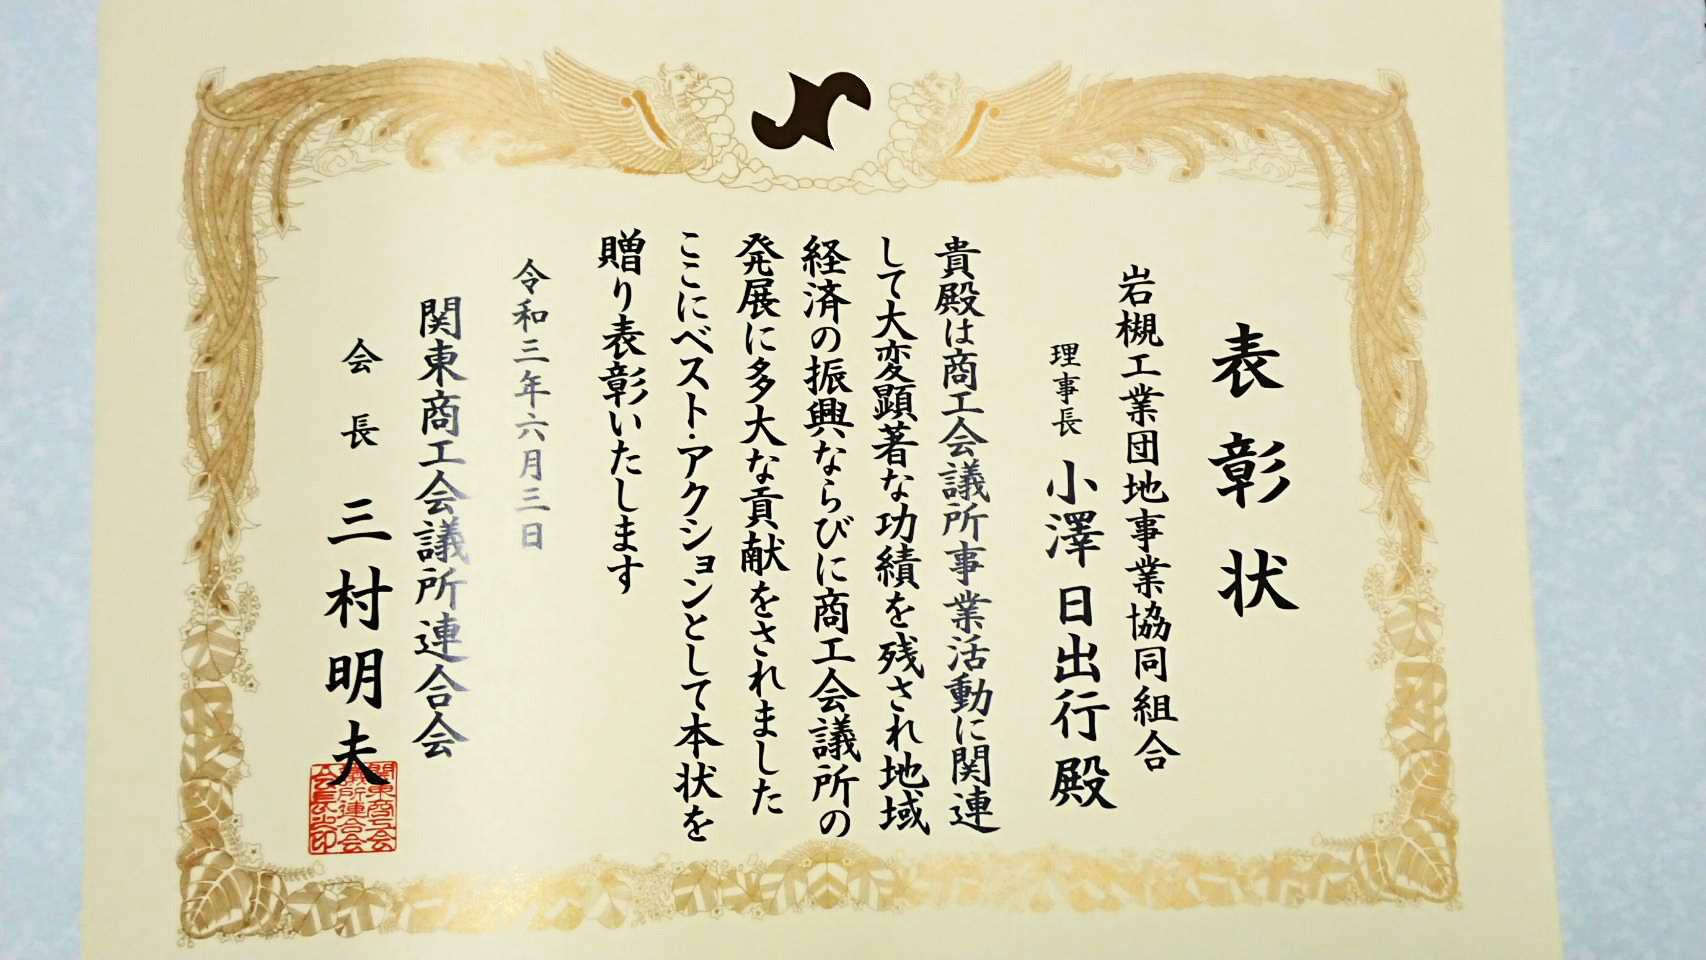 表彰状
岩槻工業団地事業協同組合
理事長 小澤日出行殿
貴殿は商工会議所事業活動に関連
して大変顕著な功績を残され地域
経済の振興ならびに商工会議所の
発展に多大な貢献をされました
ここにベスト・アクションとして本状を
贈り表彰いたします
令和三年六月三日
関東商工会議所連合会
会長 三村明夫
関東商工会
議所連合会
会長之印